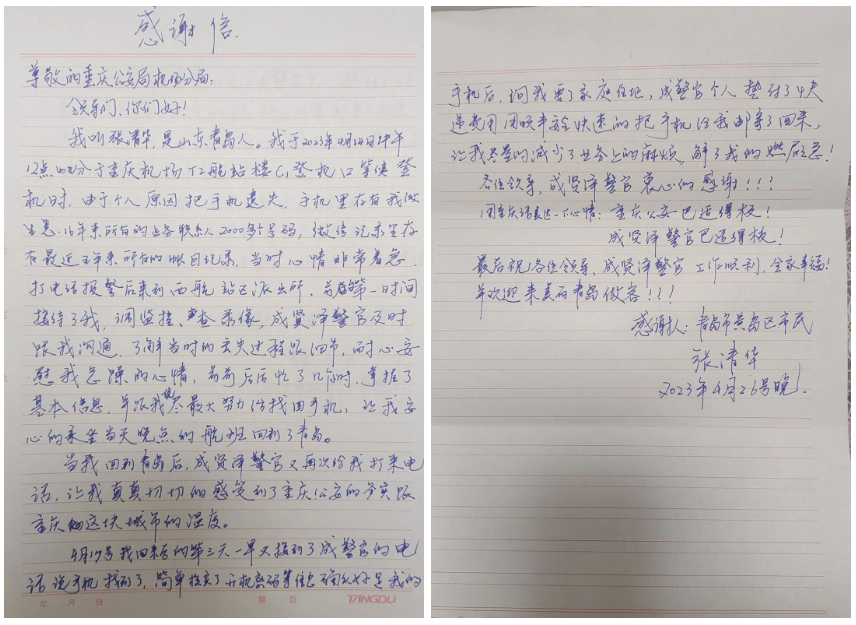 感谢信
尊敬的重庆公安局机场分局:
领导们,你们好!
我叫张清华,是山东青岛人。我于2023年4月14日中午
12点四十分于重庆机场T2航站楼C1登机口等候登
机时,由于个人原因把手机遗失,手机里存有我做
生意16年来所有的业务联系人2000多个号码,微信记录里存
有最近三年来所有的账目记录,当时心情非常着急
打电话报警后来到西航站区派出所,第一时间
接待了我,调监控、查录像,成贤泽警官及时
跟我沟通,了解当时的丢失过程跟细节,耐心安
慰我急躁的心情,前前后后忙了几个小时,掌握了
基本信息,并跟我说尽最大努力给找回手机,让我安
心的乘坐当天晚点的航班回到了青岛。
当我回到青岛后,成贤泽警官又再次给我打来电
话,让我真真切切的感受到了重庆公安的务实跟
重庆这块城市的温度。
4月17号我回来后的第三天一早又接到了成警官的电
话说手机找到了,简单核实了开机密码等信息确认好是我的
年 月 日 第 页 TANGDU
手机后,问我要了家庭住址,成警官个人垫付了快
递费用用顺丰安全快速的把手机给我邮寄了回来,
让我尽量的减少了业务上的麻烦,解了我的燃眉之急!
各位领导,成贤泽警官衷心的感谢!!!
用重庆话表达一下心情:重庆公安巴适得板!
成贤泽警官巴适得板!
最后祝各位领导、成贤泽警官工作顺利,全家幸福!
并欢迎来美丽青岛做客!!!
感谢人:青岛市黄岛区市民
张清华
2023年4月26号晚!